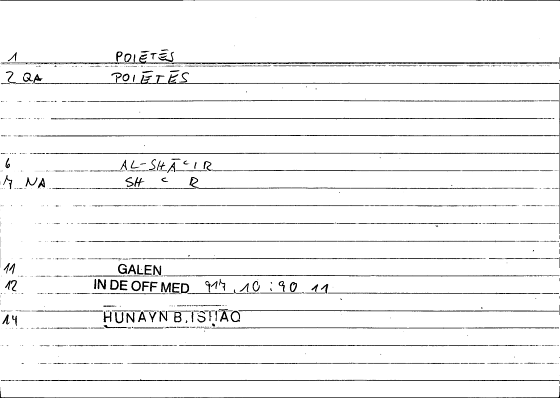 1 POIĒTĒS
2 QA POIĒTĒS
6 AL-SHĀʿIR
7 NA SH ʿ R
11 GALEN
12 IN DE OFF MED 917.10:90 11
14 ḤUNAYN B. ISḤĀQ